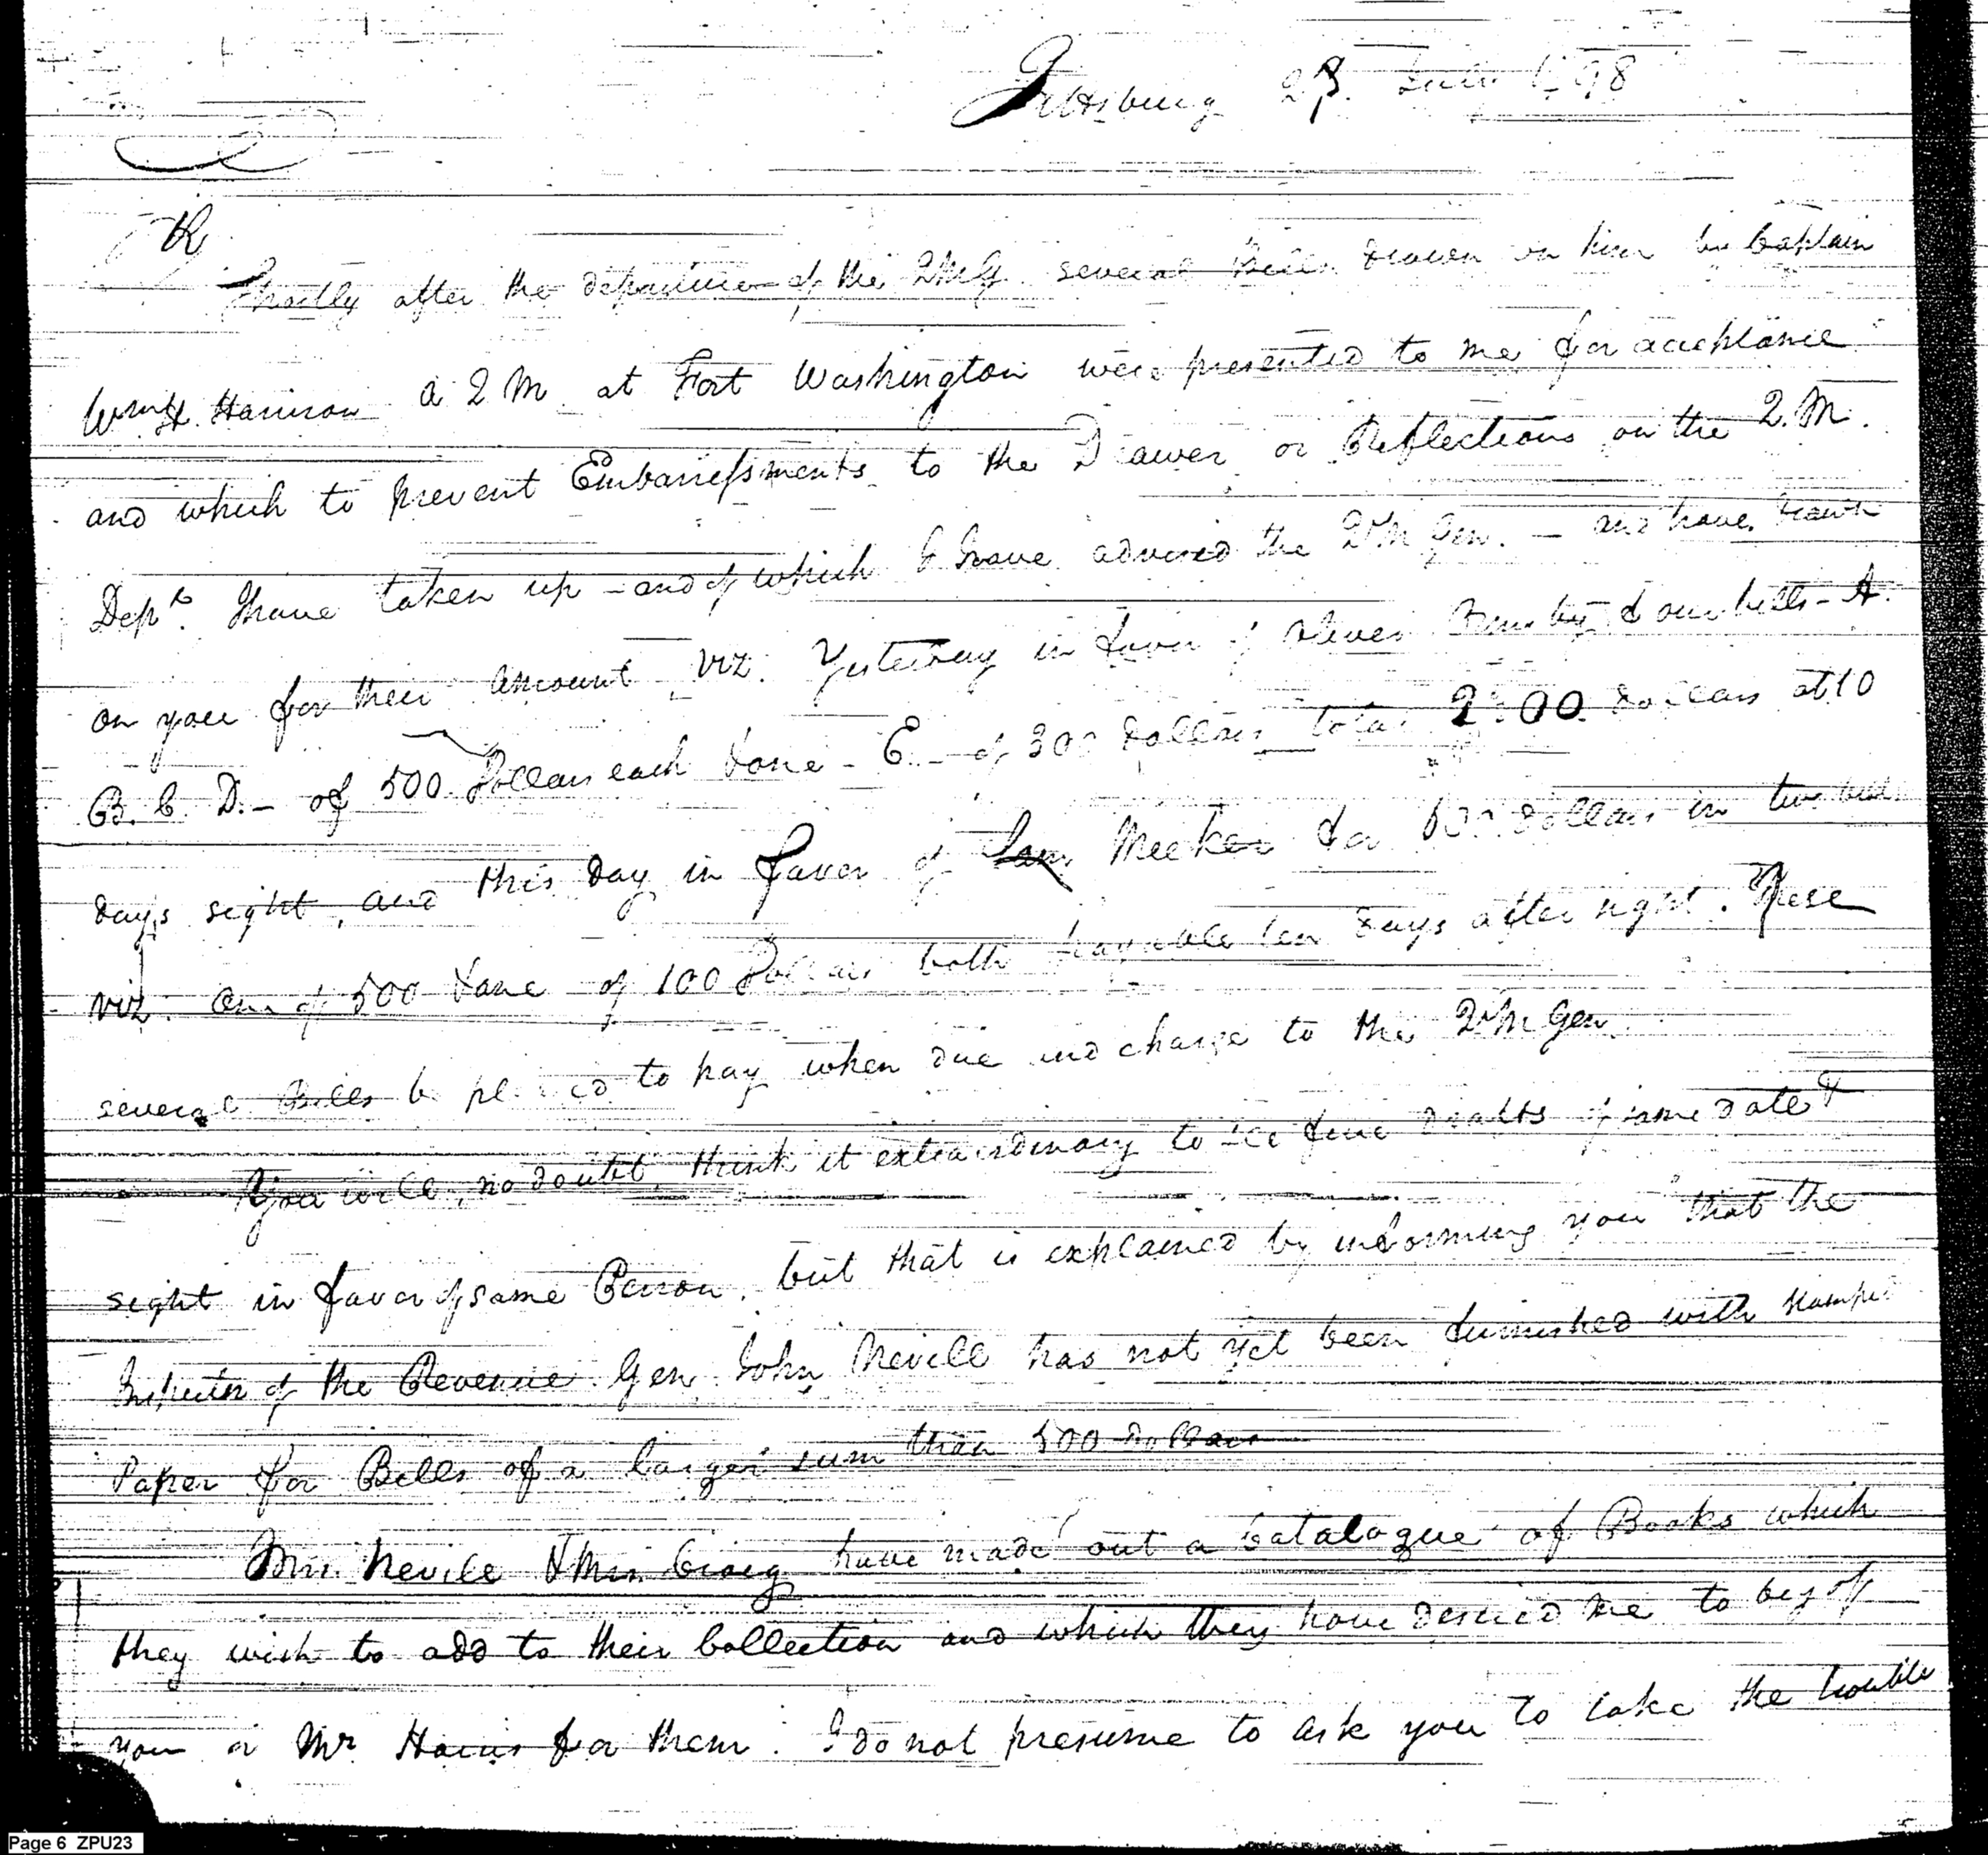 Pittsburg 28. July 1798
Shortly after the departure of the QMG several Bills drawn on him by Captain
Wm H. Harrison a Q M at Fort Washington were presented to me for acceptance
and which to prevent Embarrassments to the Drawer or Reflections on the Q. M.
Dept. I have taken up - and of which I have advised the QrM Gen. - and have drawn
on you for their amount viz. Yesterday in favor of Oliver four bills - A.
B. C. D. - of 500 Dollars each & one - E - of 300 Dollars total 2300 Dollars at 10
days sight, and this day in favor of Sam Meeker for 600 Dollars in two bills
viz. One of 500 & one of 100 Dollars both payable ten days after sight. These
several Bills be pleased to pay when due and charge to the QrM Gen.
You will, no doubt, think it extraordinary to see five drafts of same date &
sight in favor of same Person, but that is explained by informing you that the
Inspector of the Revenue Gen. John Nevill has not yet been furnished with stamped
Paper for Bills of a larger sum than 500 Dollars
Mrs. Nevill & Mrs. Craig have made out a Catalogue of Books which
they wish to add to their Collection and which they have desired me to beg of
you or Mr Harris for them. I do not presume to ask you to take the trouble
Page 6 ZPU23